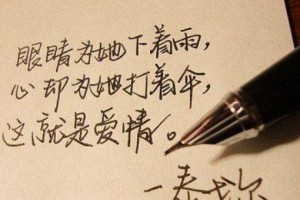 眼睛为她下着雨,
心却为她打着伞,
这就是爱情。
一泰戈尔